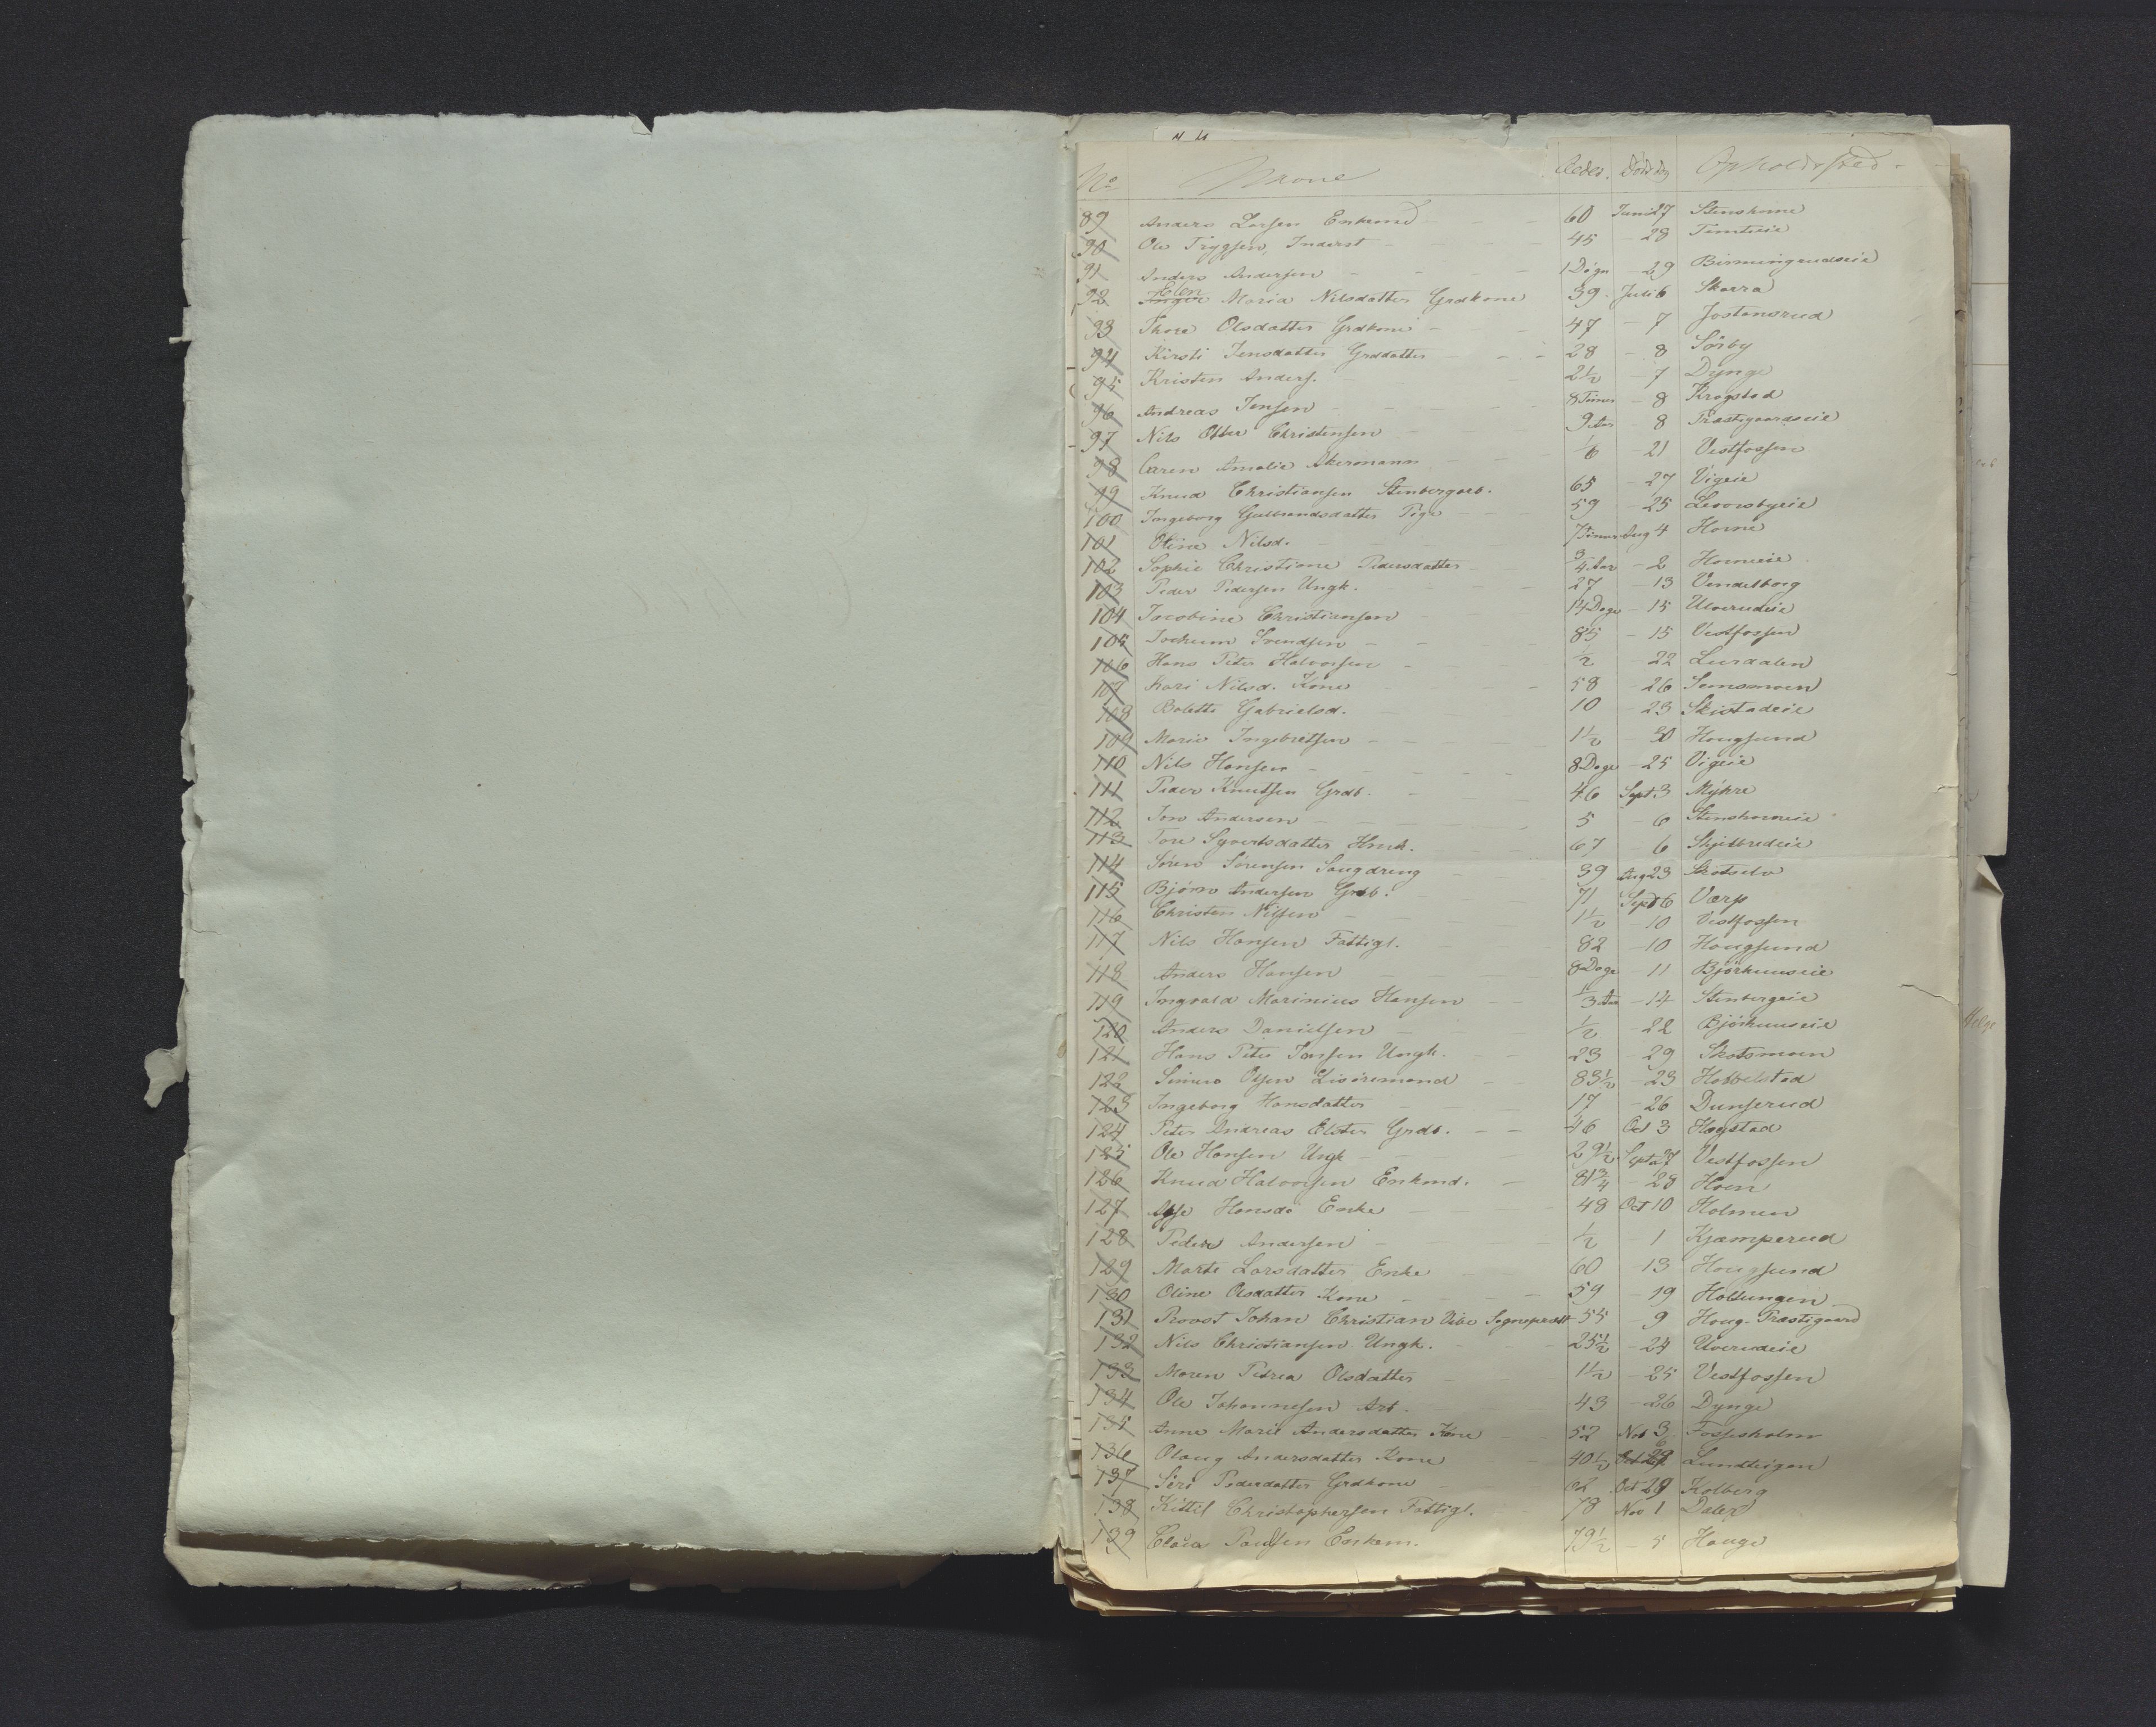 No Navne Alder. Dødsdag Opholdssted.
89 Anders Larsen Enkemd 60 Juni 27 Stenshorne
90 Ole Trygsen, Inderst 45 - 28
91 Anders Andersen 1 Døgn - 29
92 Elen Maria Nilsdatter Grdkone 39 Juli 6 Skarra
93 Thore Olsdatter Grdkone 47 - 7 Jostensrud
94 Kirsti Jensdatter Grddatter 28 - 8 Sørby
95 Kristen Anders. 2½ - 7 Dynge
96 Andreas Jensen 8 Timer - 8 Krogstad
97 Nils Otter Christensen 9 Aar - 8 Præstegaardseie
98 Caren Amalie Akermann 1/6 - 21 Vestfossen
99 Knud Christiansen Stenbergarb. 65 - 27 Vigeie
100 Ingeborg Gulbrandsdatter Pige 59 - 25 Leversbyeie
101 Oline Nilsd. 7 Timer Aug 4 Horne
102 Sophie Christiane Pedersdatter 3/4 Aar - 2 Horneeie
103 Peder Pedersen Ungk. 27 - 13 Vendelborg
104 Jacobine Christiansen 14 Dage - 15 Ulverudeie
105 Jochum Svendsen 85 - 15 Vestfossen
106 Hans Peter Halvorsen ½ 22 Lurdalen
107 Kari Nilsd. Kone 58 - 26 Semsmoen
108 Bolette Gabrielsd. 10 - 23 Skistadeie
109 Marie Ingebretsen 1½ - 30 Hougsund
110 Nils Hansen 8 Dage - 25 Vigeie
111 Peder Knutsen Grdb. 46 Sept. 3 Myhre
112 Jon Andersen 5 - 6 Stenshorneie
113 Tore Syvertsdatter Hmk. 67 - 6 Skjelbredeie
114 Søren Sørensen Saugdreng 39 Aug 23 Skotselv
115 Bjørn Andersen Grdb. 71 Sept 6 Værp
116 Christen Nilsen 1½ - 10 Vestfossen
117 Nils Hansen Fattigl. 82 - 10 Hougsund
118 Anders Hansen 8 Dage - 11 Bjørkeruseie
119 Ingvald Marinius Hansen 1/3 Aar - 14 Stenbergeie
120 Anders Danielsen ½ - 22 Bjørkeruseie
121 Hans Peter Jensen Ungk. 23 - 29 Skotsmoen
122 Simen Olsen 83½ - 23 Hobbelstad
123 Ingeborg Hansdatter 17 - 26 Dunserud
124 Peter Andreas Elster Grdb. 46 Oct 3 Hagstad
125 Ole Hansen Ungk 29½ Septa 27 Vestfossen
126 Knud Halvorsen Enkmd. 81¾ - 28 Hoen
127 Hansda Enke 48 Oct 10 Holmen
128 Peder Andersen ½ - 1 Kjæmperud
129 Marte Larsdatter Enke 60 - 13 Hougsund
130 Oline Olsdatter Kone 59 - 19 Holtungen
131 Provst Johan Christian Vibe Sognepræst 55 - 9 Houg-Præstegaard
132 Nils Christiansen Ungk. 25½ - 24 Ulverudeie
133 Maren Petrea Olsdatter 1½ - 25 Vestfossen
134 Ole Johannesen Arb. 43 - 26 Dynge
135 Anne Marie Andersdatter Kone 52 Nov 3 Fossesholm
136 Olaug Andersdatter Kone 40½ Lundteigen
137 Siri Pedersdatter Grdkone Oct 29 Kolberg
138 Kittil Christophersen Fattigl. 78 Nov 1 Daler
139 Claus Paulsen Enkem. 79½ - 5 Houge